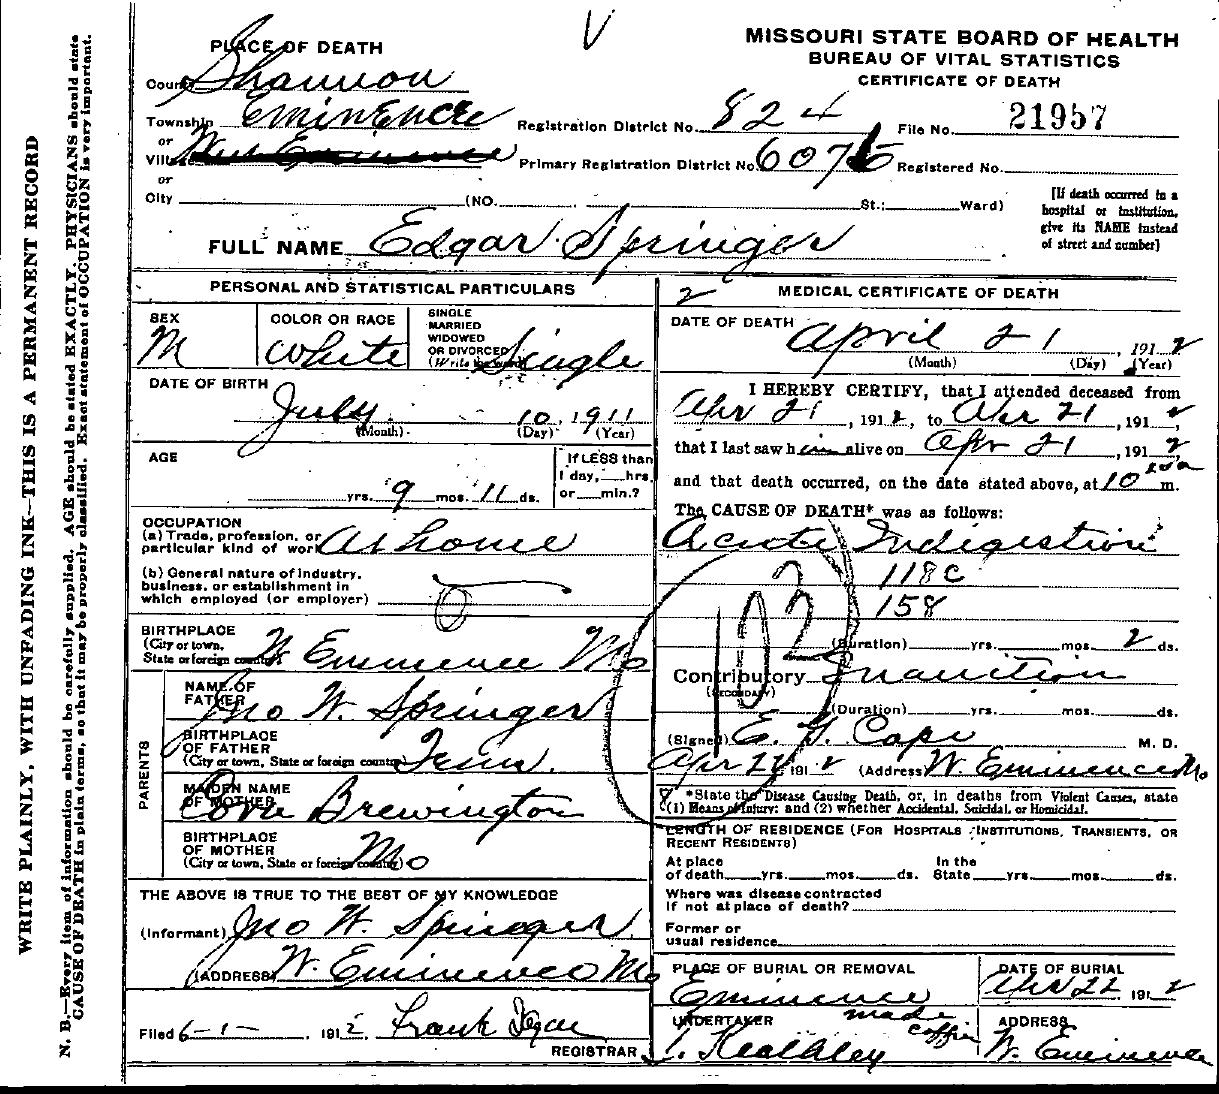 V
MISSOURI STATE BOARD OF HEALTH
BUREAU OF VITAL STATISTICS
CERTIFICATE OF DEATH
PLACE OF DEATH
County Shannon
Township Eminence
or
Village West Eminence
or
City (NO. St.; Ward)
Registration District No. 824 File No. 21957
Primary Registration District No. 6075 Registered No.
[If death occurred in a
hospital or institution,
give its NAME instead
of street and number]
FULL NAME Edgar Springer
PERSONAL AND STATISTICAL PARTICULARS
SEX
M
COLOR OR RACE
White
SINGLE
MARRIED
WIDOWED
OR DIVORCED
(Write the word) Single
DATE OF BIRTH
July 10, 1911
(Month) (Day) (Year)
AGE
yrs. 9 mos. 11 ds.
If LESS than
1 day, hrs.
or min.?
OCCUPATION
(a) Trade, profession, or
particular kind of work At home
(b) General nature of industry,
business, or establishment in
which employed (or employer) 0
BIRTHPLACE
(City or town,
State or foreign country) W Eminence Mo
PARENTS
NAME OF
FATHER Jno W. Springer
BIRTHPLACE
OF FATHER
(City or town, State or foreign country) Tenn.
MAIDEN NAME
OF MOTHER Brewington
BIRTHPLACE
OF MOTHER
(City or town, State or foreign country) Mo
THE ABOVE IS TRUE TO THE BEST OF MY KNOWLEDGE
(Informant) Jno W. Springer
(ADDRESS) W. Eminence Mo
Filed 6-1- 1912 Frank
REGISTRAR
2 MEDICAL CERTIFICATE OF DEATH
DATE OF DEATH April 21, 1912
(Month) (Day) (Year)
I HEREBY CERTIFY, that I attended deceased from
Apr 21, 1912, to Apr 21, 1912,
that I last saw him alive on Apr 21, 1912
and that death occurred, on the date stated above, at 10 m.
The CAUSE OF DEATH* was as follows:
Acute Indigestion
118c
158
102
(Duration) yrs. mos. 2 ds.
Contributory Inanition
(SECONDARY)
(Duration) yrs. mos. ds.
(Signed) E. G. Cope M. D.
Apr 22 1912 (Address) W. Eminence Mo
*State the Disease Causing Death, or, in deaths from Violent Causes, state
(1) Means of Injury; and (2) whether Accidental, Suicidal, or Homicidal.
LENGTH OF RESIDENCE (FOR HOSPITALS, INSTITUTIONS, TRANSIENTS, OR
RECENT RESIDENTS)
At place In the
of death yrs. mos. ds. State yrs. mos. ds.
Where was disease contracted
If not at place of death?
Former or
usual residence
PLACE OF BURIAL OR REMOVAL
Eminence
DATE OF BURIAL
Apr 22 1912
UNDERTAKER made coffin
Keathley
ADDRESS
W. Eminence
WRITE PLAINLY, WITH UNFADING INK—THIS IS A PERMANENT RECORD
N. B.—Every item of information should be carefully supplied. AGE should be stated EXACTLY. PHYSICIANS should state
CAUSE OF DEATH in plain terms, so that it may be properly classified. Exact statement of OCCUPATION is very important.